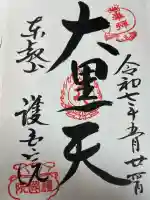 令和七年五月廿四日
大黒天
東叡山
護国院